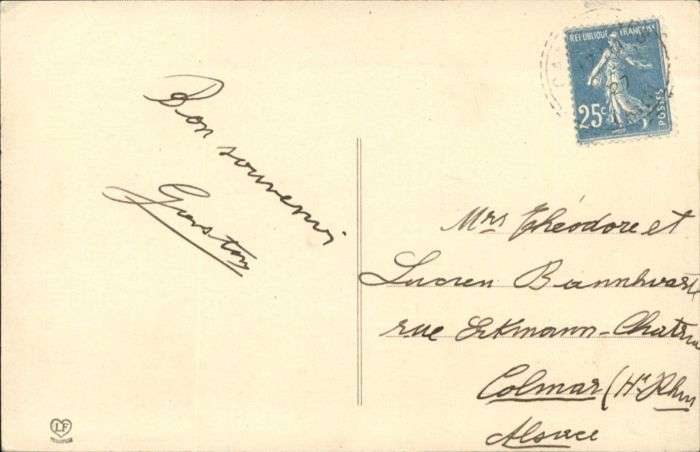 Bon souvenir
Gaston
RÉPUBLIQUE FRANÇAISE
25c
POSTES
Mrs Théodore et
Lucien
rue Erkmann-Chatrian
Colmar (Ht Rhin
Alsace
LF